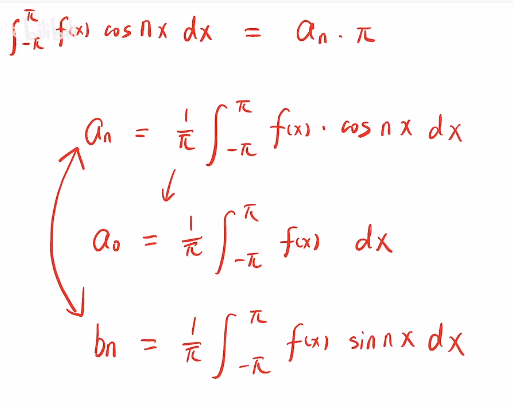 ∫_{-π}^{π} f(x) cos nx dx = aₙ · π
aₙ = 1/π ∫_{-π}^{π} f(x) · cos nx dx
a₀ = 1/π ∫_{-π}^{π} f(x) dx
bₙ = 1/π ∫_{-π}^{π} f(x) sin nx dx